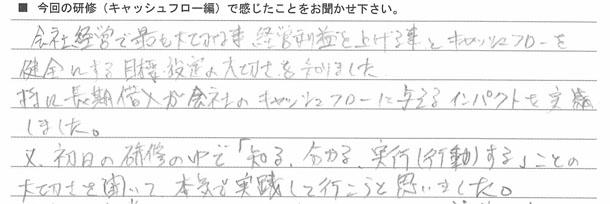 ■ 今回の研修（キャッシュフロー編）で感じたことをお聞かせ下さい。
会社経営で最も大切な事 経営利益を上げる事とキャッシュフローを
健全にする目標設定の大切さを知りました
特に長期借入が会社のキャッシュフローに与えるインパクトを実感
しました。
又、初日の研修の中で「知る、分かる、実行(行動)する」ことの
大切さを聞いて 本気で実践して行こうと思いました。